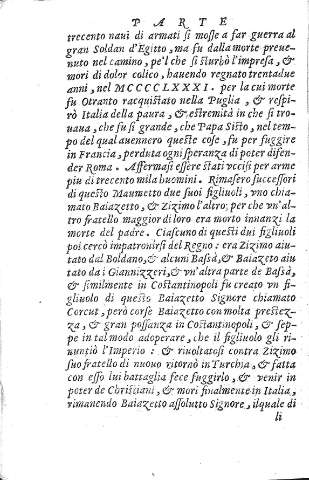 PARTE
trecento naui di armati si mosse a far guerra al
gran Soldan d'Egitto, ma fu dalla morte preue-
nuto nel camino, pe'l che si sturbò l'impresa, &
morì di dolor colico, hauendo regnato trentadue
anni, nel MCCCCLXXXI. per la cui morte
fu Otranto racquistato nella Puglia, & respi-
rò Italia della paura, & estremità in che si tro-
uaua, che fu sì grande, che Papa Sisto, nel tem-
po del qual auennero queste cose, fu per fuggire
in Francia, perduta ogni speranza di poter difen-
der Roma. Affermasi essere stati vccisi per arme
piu di trecento mila huomini. Rimasero successori
di questo Maumetto due suoi figliuoli, vno chia-
mato Baiazetto, & Zizimo l'altro; per che vn'al-
tro fratello maggior di loro era morto innanzi la
morte del padre. Ciascuno di questi dui figliuoli
poi cercò impatronirsi del Regno: era Zizimo aiu-
tato dal Boldano, & alcuni Bassà, & Baiazeto aiu
tato da i Giannizzeri, & vn'altra parte de Bassà,
& similmente in Costantinopoli fu creato vn fi-
gliuolo di questo Baiazetto Signore chiamato
Corcut, però corse Baiazetto con molta prestez-
za, & gran possanza in Costantinopoli, & sep-
pe in tal modo adoperare, che il figliuolo gli ri-
nuntiò l'Imperio: & riuoltatosi contra Zizimo
suo fratello di nuouo ritornò in Turchia, & fatta
con esso lui battaglia fece fuggirlo, & venir in
poter de Christiani, & morì finalmente in Italia,
rimanendo Baiazetto assoluto Signore, il quale di
li